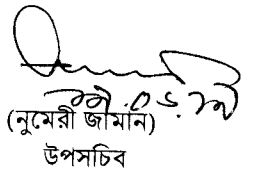 (নুমেরী জামান)
উপসচিব